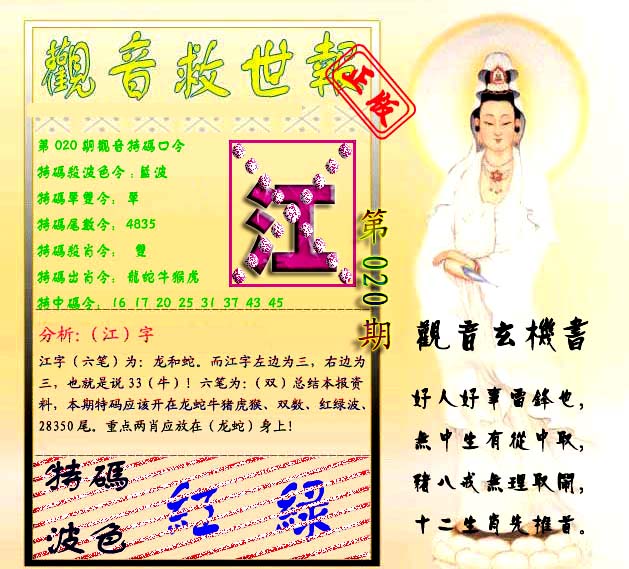 觀音救世報
正版
第020期觀音特碼口令
特碼殺波色令：藍波
特碼單雙令：單
特碼尾數令：4835
特碼殺肖令：雙
特碼出肖令：龍蛇牛猴虎
特中碼令：16 17 20 25 31 37 43 45
江
第020期
分析：（江）字
江字（六笔）为：龙和蛇。而江字左边为三，右边为
三，也就是说33（牛）！六笔为：（双）总结本报资
料，本期特码应该开在龙蛇牛猪虎猴、双数、红绿波、
28350尾。重点两肖应放在（龙蛇）身上！
特碼
波色
紅 綠
觀音玄機書
好人好事雷鋒也，
無中生有從中取，
豬八戒無理取鬧，
十二生肖先推首。